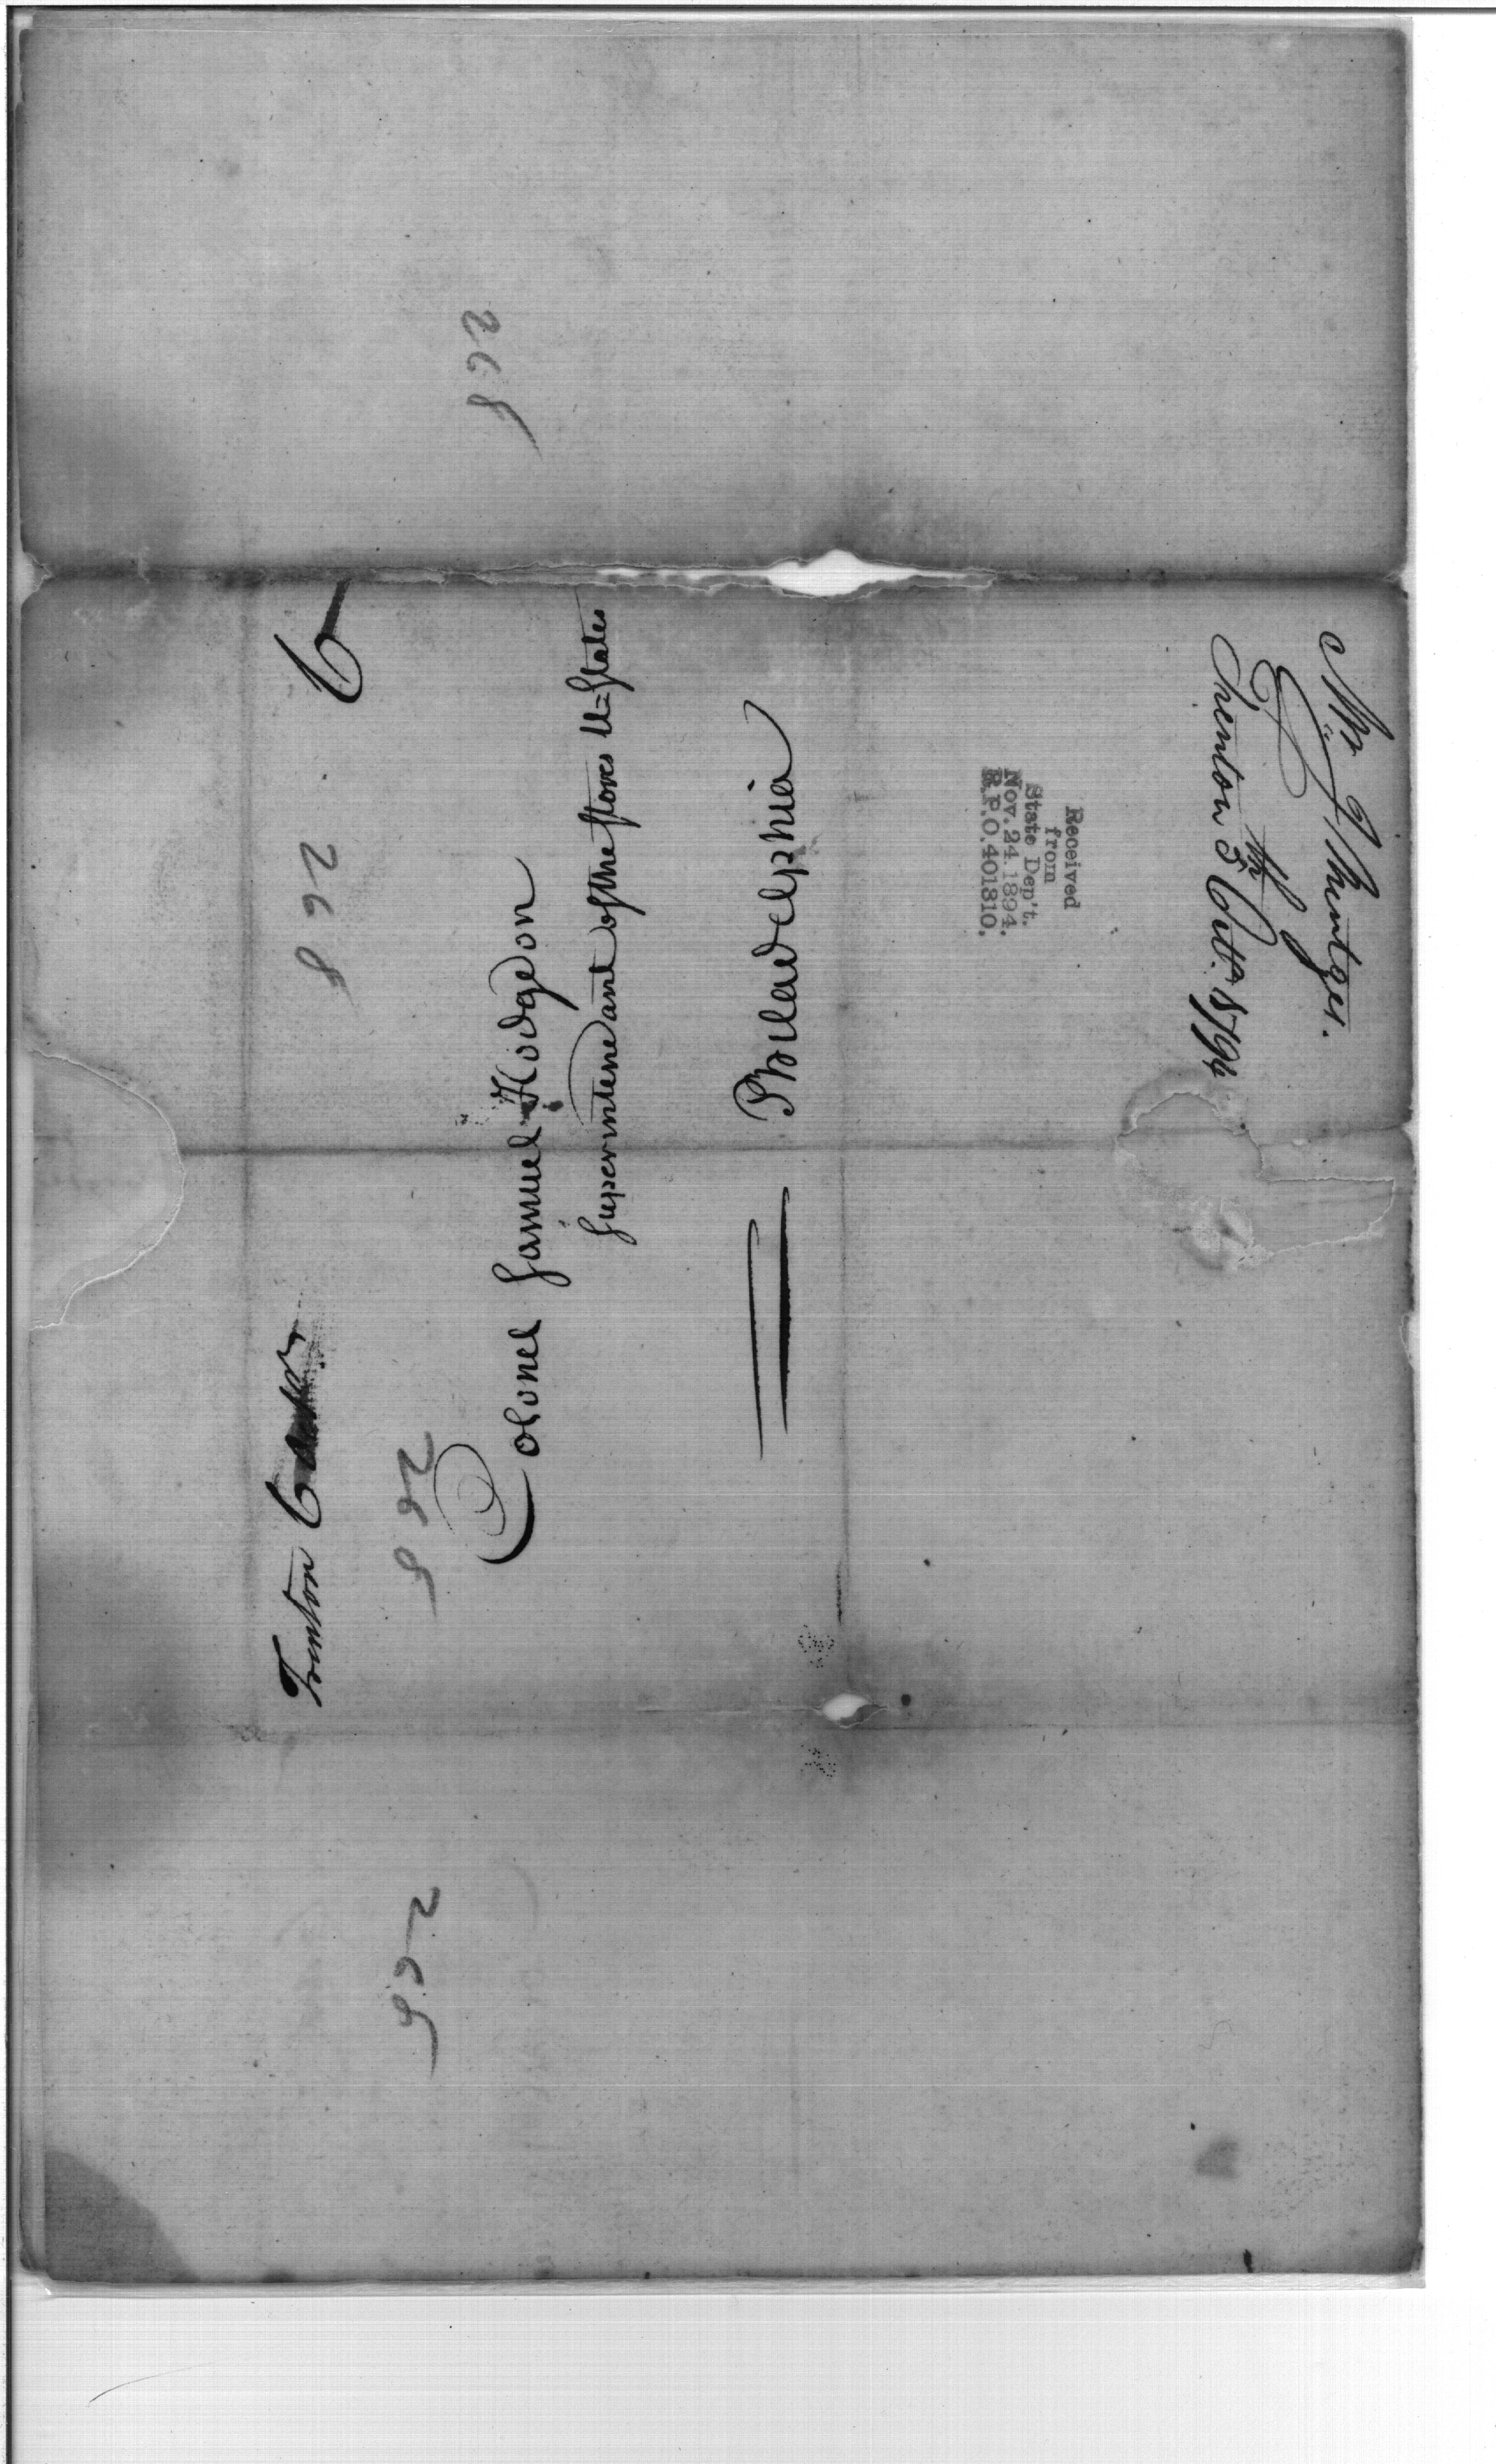 Trenton
6
Colonel Samuel Hodgdon
Superintendant of the stores U=States
Philadelphia
268
268
268
268
Received
from
State Dep't.
Nov. 24. 1894.
R.P.O. 401310.
Trenton 5th Octr. 1794